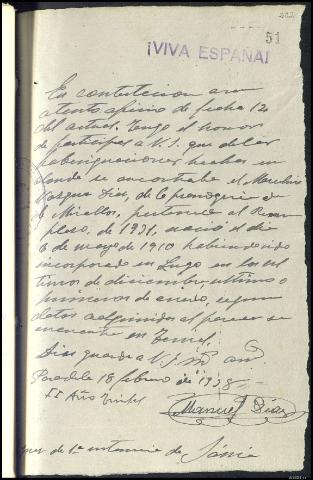 51
¡VIVA ESPAÑA!
En contestacion a su
atento oficio de fecha 12
del actual, tengo el honor
de participar a V.S. que de las
habiriguaciones hechas en
donde se encontraba el Marcelino
Vazquez Diaz, de la parroquia de
Miralles, pertenece al Reem
plazo, de 1931, nació el dia
6 de mayo de 1910 habiendo sido
incorporado en Lugo en los ul
timos de diciembre, ultimo o
primeros de enero, segun
datos adquiridos al parecer se
encuentra en Teruel.
Dios guarde a V.S. m. an.
Paradela 18 febrero de 1938
II Año Triunfal
Manuel Diaz
de 1ª instancia de Sarria